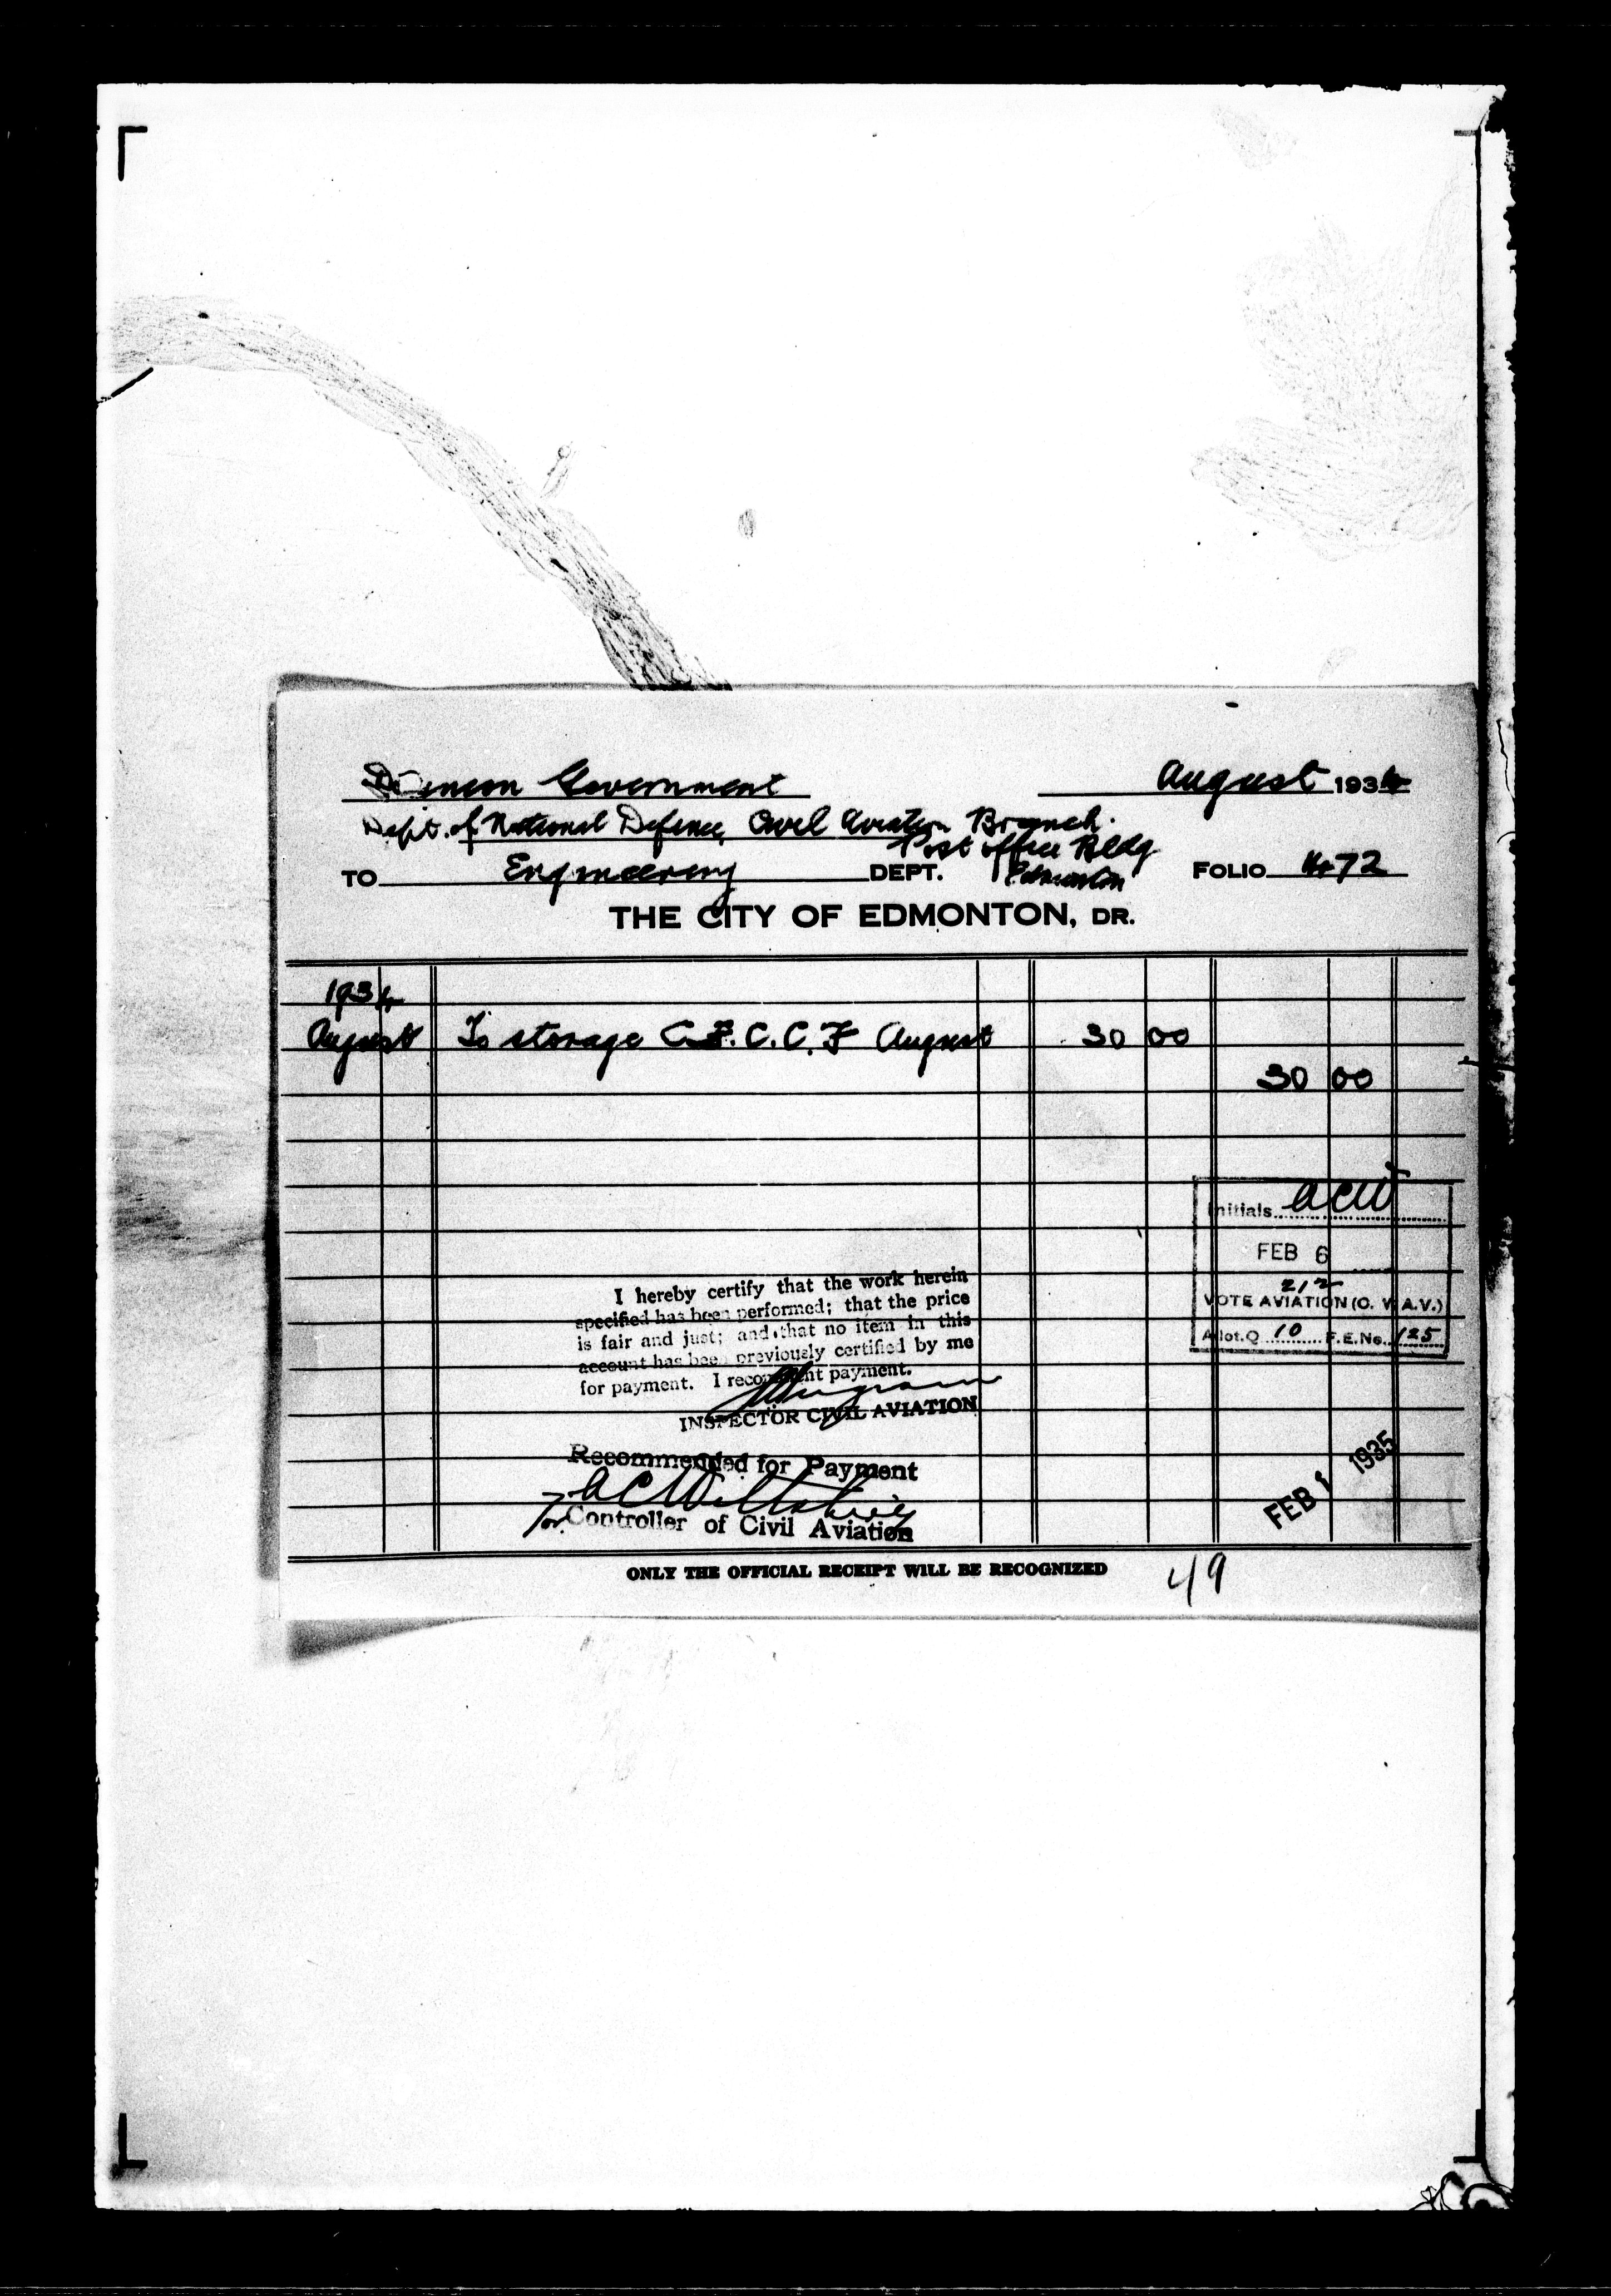 Dominion Government
August 1934
Dept. of National Defence, Civil Aviation Branch.
Post Office Bldg
Edmonton
TO Engineering DEPT. FOLIO 4472
THE CITY OF EDMONTON, DR.
1934
August To storage C.F.C.C.F August 30 00
30 00
Initials ACW
FEB 6
212
VOTE AVIATION (O. V A.V.)
Allot.Q 10 F.E.No. 125
I hereby certify that the work herein
specified has been performed; that the price
is fair and just; and that no item in this
account has been previously certified by me
for payment. I recommend payment.
INSPECTOR CIVIL AVIATION
Recommended for Payment
For Controller of Civil Aviation
FEB 1 1935
ONLY THE OFFICIAL RECEIPT WILL BE RECOGNIZED
49